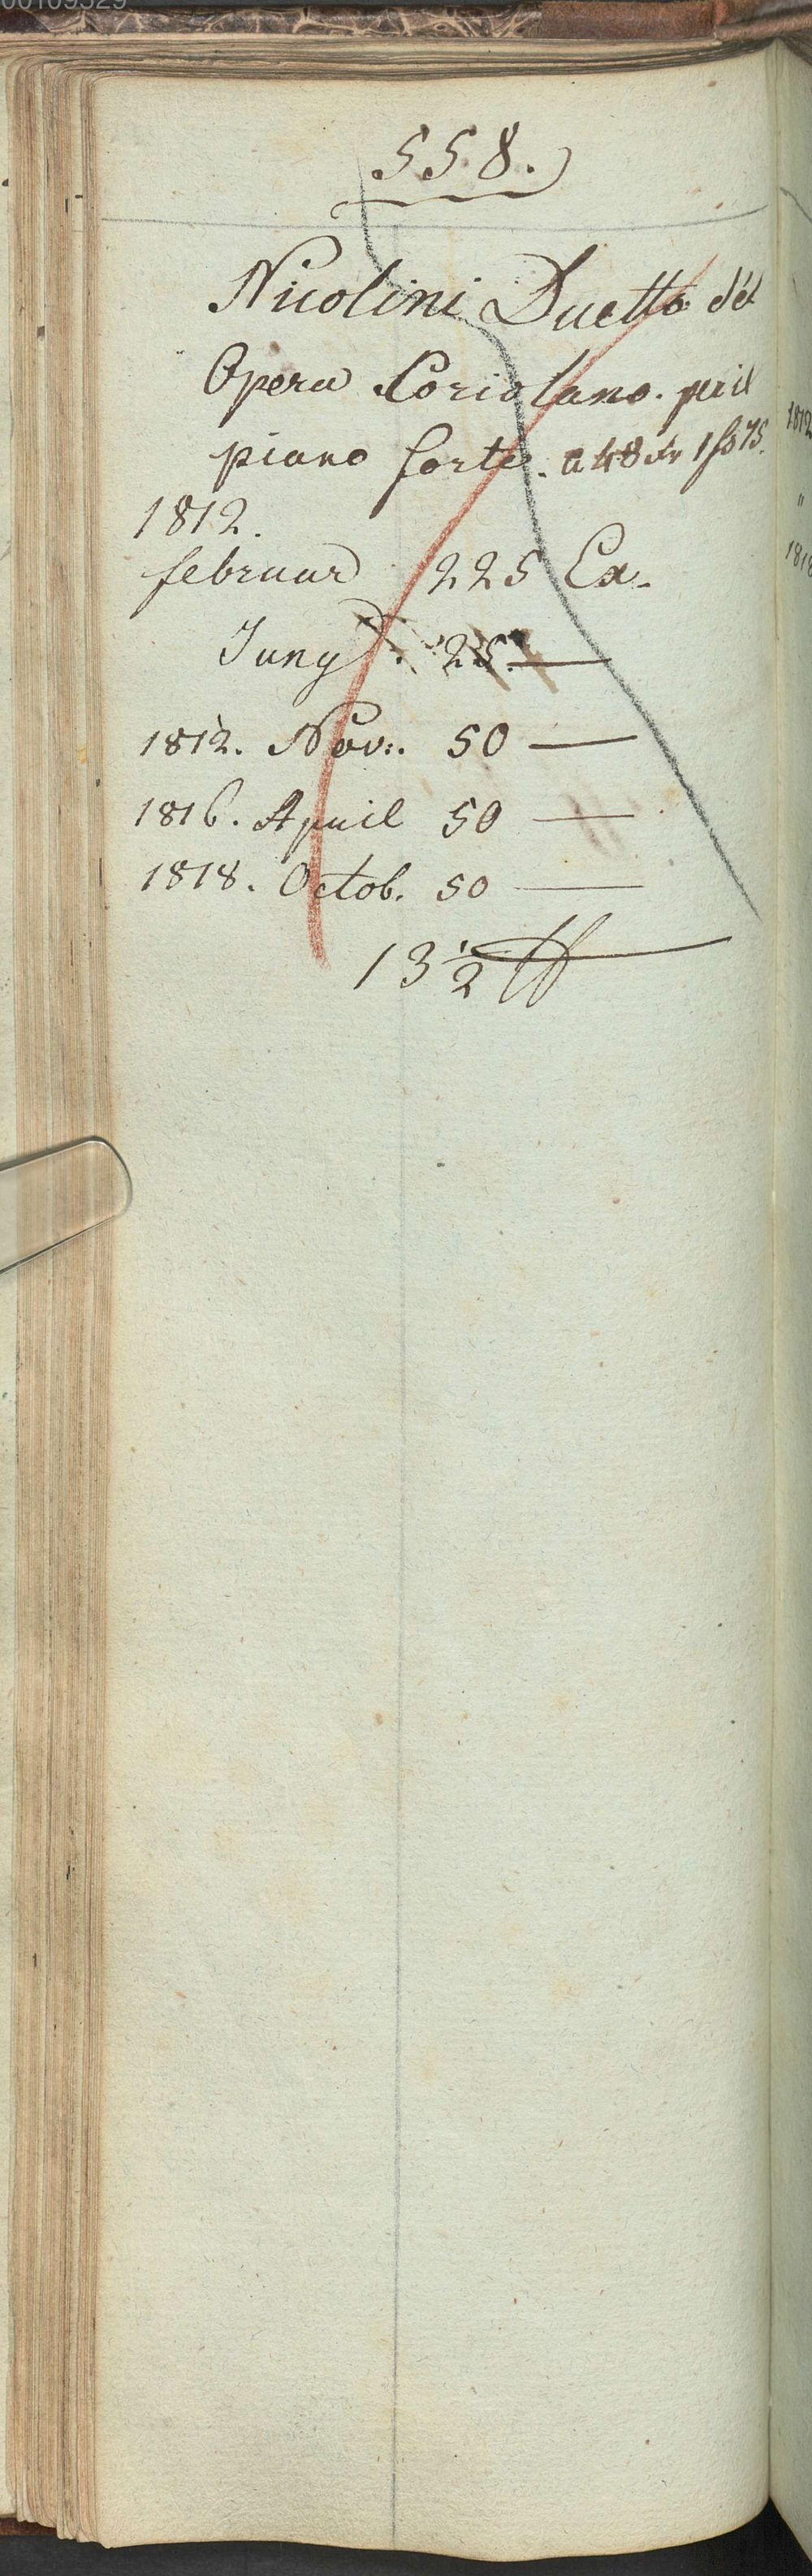 00109529
558.
Nicolini Duetto del
Opera Coriolano. per il
piano forte. a 48 xr
1812.
februar 225 Ex.
Juny. 25. —
1812. Nov: 50 —
1816. April 50 —
1818. Octob. 50 —
13 1/2
1812
"
1818